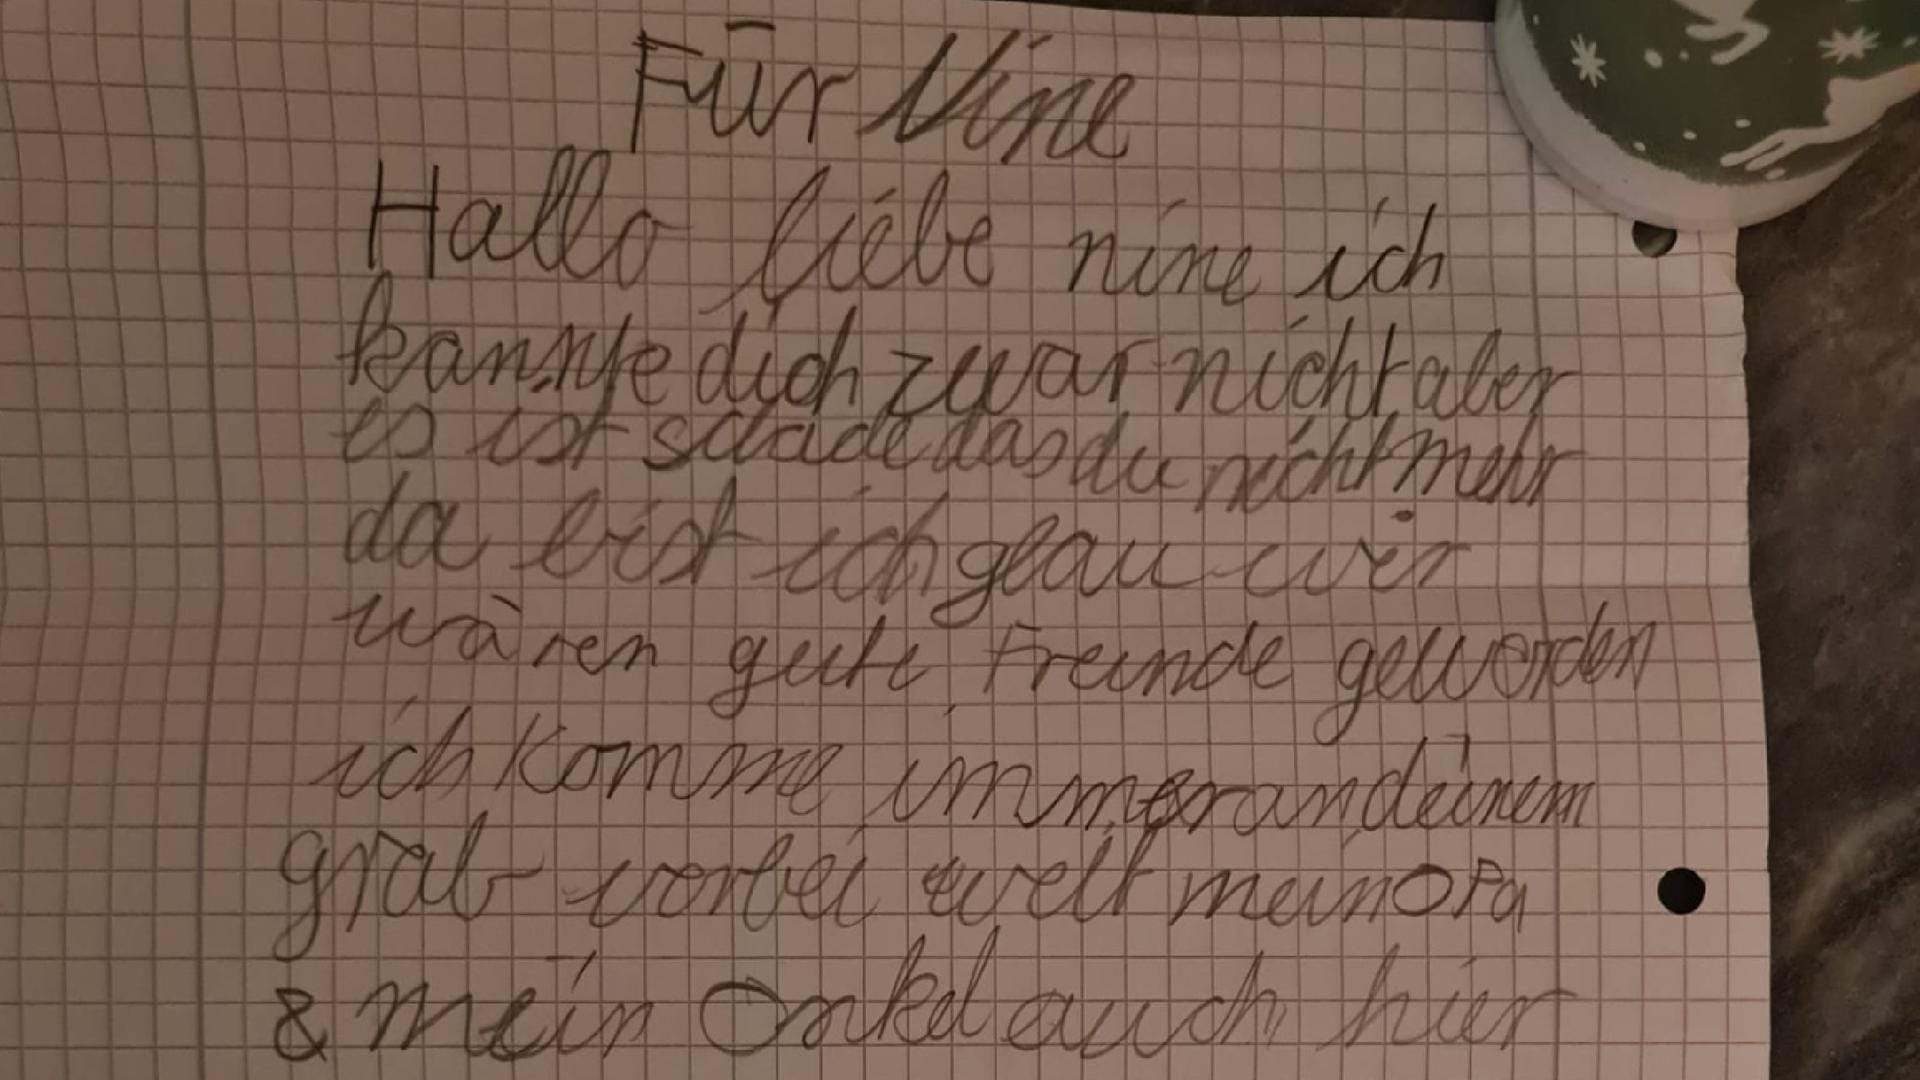 Für Nine
Hallo liebe nine ich
kannte dich zwar nicht aber
es ist schade das du nicht mehr
da bist ich glau wir
wären gute Freunde geworden
ich komme immer an deinem
grab vorbei weil mein Opa
& mein Onkel auch hier